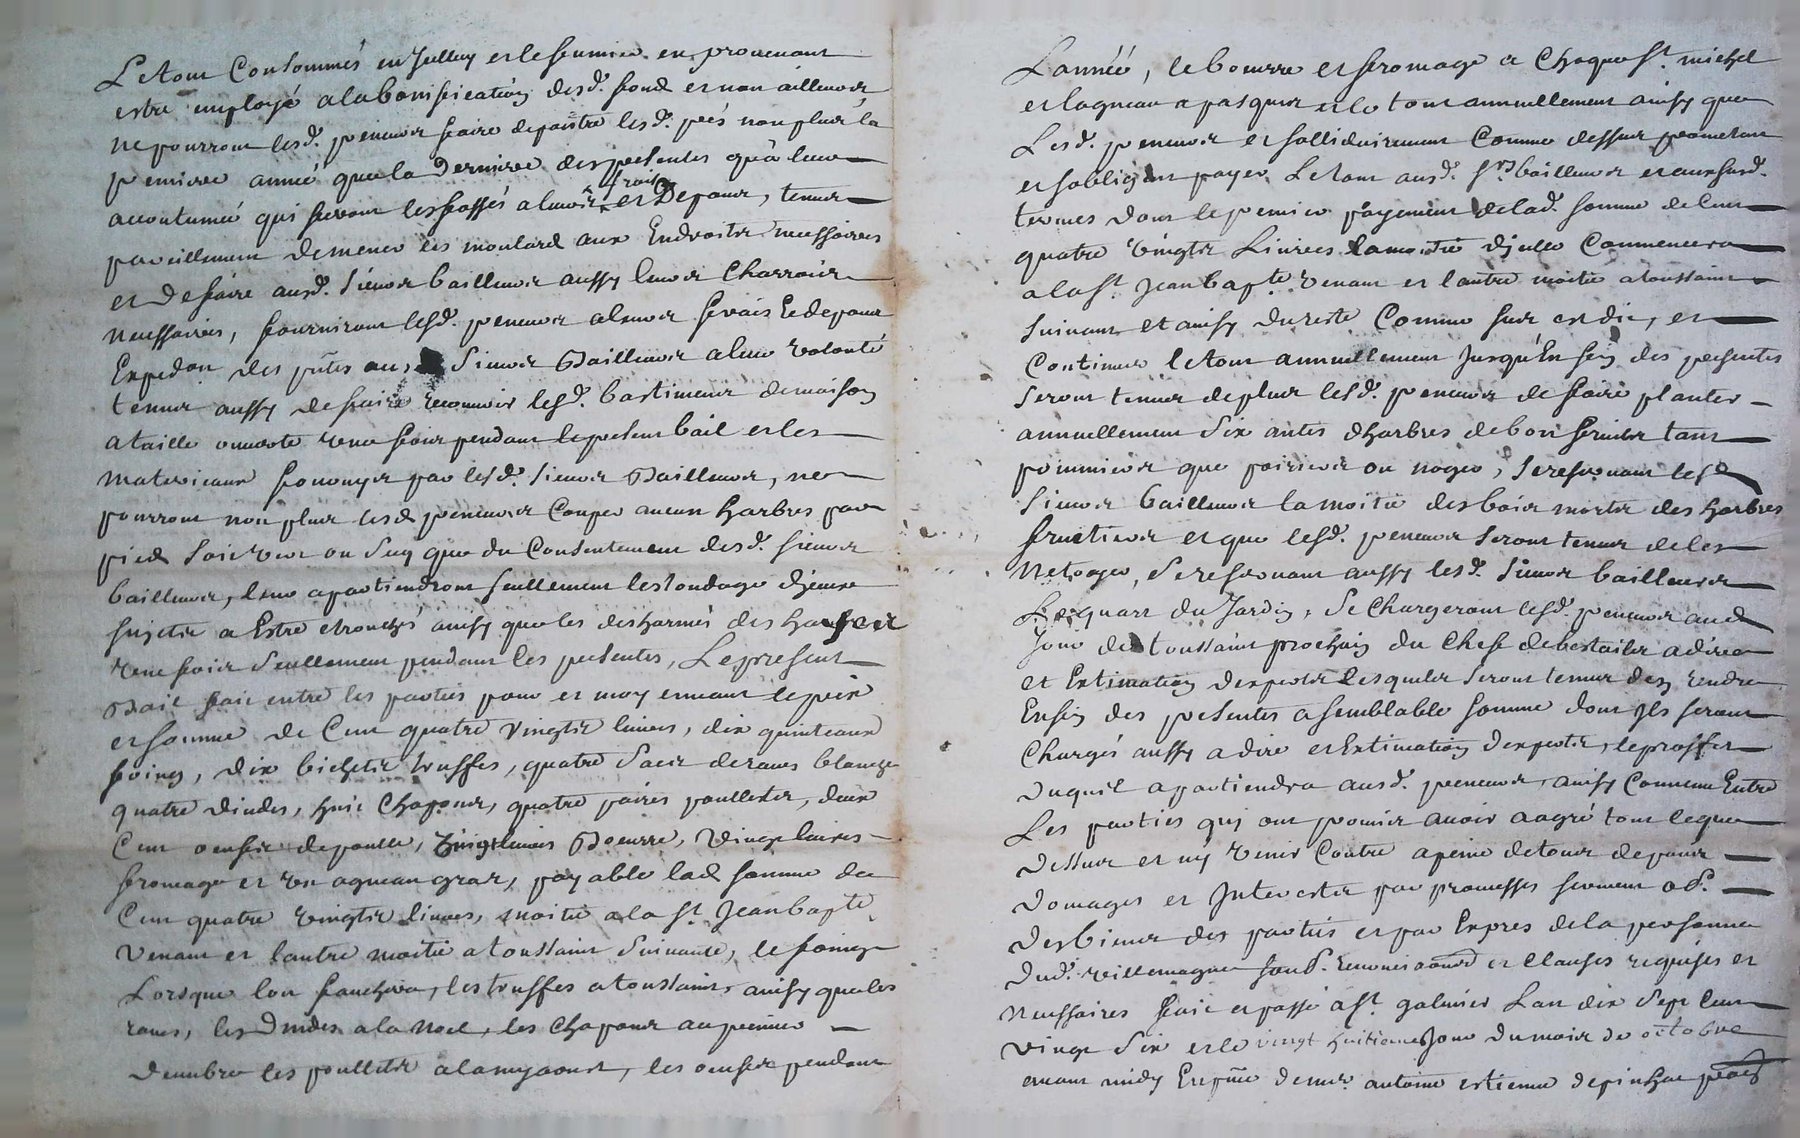 Le tout Consommés en Jelluy et le feumier en provenant
estre employé a la bonification desd. fond et non ailleurs
ne pourront lesd. preneurs faire depaitre lesd. prés non plus la
premiere année que la derniere des presentes qu'a leur
accoutumée qui seront les fossés a leurs frais et Depans, tenus
pareillement demener les moulard aux Endroits neussaires
et de faire ausd. sieurs bailleurs aussy leurs Charrois
neussaires, fourniront lesd. preneurs a leurs frais Et depans
Expedon des pntes au, Sieurs Bailleurs a leur volonté
tenus aussy de faire recouvrir lesd. bastiments de maison
a taille ouverte une fois pendant le present bail et les
materieaux fournys par lesd. Sieurs Bailleurs, ne
pourront non plus lesd preneurs Couper aucun harbres par
pied soit vert ou Secq que du Consentement desd. sieurs
bailleurs, leur apartiendront seullement les tondage d'jceux
sujets a Estre etronchés ainsy que les desharmés des hayes
une fois seullement pendant les presentes, Le present
Bail fait entre les parties pour et moyennant le prix
et somme de Cent quatre vingts livres, dix quinteaux
foings, dix bichets truffes, quatre sacs de raves blanche
quatre dindes, huit Chapons, quatre paires poullets, deux
Cent oeufs de poulle, vingt livres Beurre, vingt livres
fromage et un agneau gras, payable lad somme de
Cent quatre vingts livres, moitié a la St Jean bapte
venant et lautre moitié a toussaint suivante, le foing
Lorsque lon fauchera, les truffes a toussaint, ainsy que les
raves, les Dindes a la Noel, les Chapons au premier
Dennbre les poullets a la my aoust, les oeufs pendant
Lannéé, le beurre et fromage a Chaque St. michel
et lagneau a pasques et le tout annuellement ainsy que
Lesd. preneurs et sollidairement Comme dessus prometent
et sobligent payer Le tout ausd. Srs bailleurs et aux susd.
termes dont le premier payement de lad. somme de Cent
quatre vingts Livres la moitié d'jcelle Commencera
a la St. Jean bapte venant et lautre moitié a toussaint
suivant et ainsy du reste Comme sus est dit, et
Continuer le tout annuellement jusqu'En fin des presentes
seront tenus de plus lesd. preneurs de faire planter
annuellement Six antes d'harbres de bon fruits tant
pommiers que poiriers ou noyer, se reservant lesd
sieurs bailleurs la moitié des bois morts des harbres
fructiers et que lesd. preneurs seront tenus de les
Netoyer, se reservant aussy lesd. sieurs bailleurs
Le quart du Jardin, Se Chargeront lesd. preneurs aud
Jour de toussaint prochain du Chef de bestailes a dire
et Extimation dexperts Lesquels seront tenus den rendre
Enfin des presentes a semblable somme dont jls seront
Chargés aussy a dire et Extimation dexperts, le proffit
Duquel apartiendra ausd. preneurs, ainsy Convenu Entre
Les parties qui ont promis avoir a agré tout le que
Dessus et ny venir Contre a peine de tous depans
Domages et Interests par promesses serment ob.
Des biens des parties et par Expres de la personne
Dud. veillemagne soub. renonciaons et Clauses requises et
neussaires fait et passé a St. galmier Lan dix Sept Cent
vingt Six et le vingt huitiemes Jour du mois de octobre
avant midy En pnce de mr. antoine estienne depinhac